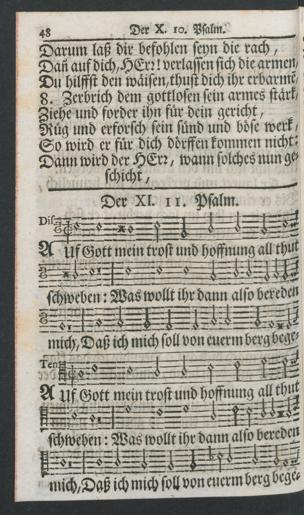 48 Der X. 10. Psalm.
Darum laß dir befohlen seyn die rach,
Dañ auf dich, HErr! verlassen sich die armen,
Du hilffst den wäisen, thust dich ihr erbarmē
8. Zerbrich dem gottlosen sein armes stärk,
Ziehe und forder ihn für dein gericht,
Rüg und erforsch sein sünd und böse werk
So wird er für dich dörffen kommen nicht:
Dann wird der HErr, wann solches nun ge-
schicht,
Der XI. 11. Psalm.
Dis.
AUf Gott mein trost und hoffnung all thut
schweben: Was wollt ihr dann also bereden
mich, Daß ich mich soll von euerm berg bege-
Ten.
AUf Gott mein trost und hoffnung all thut
schweben: Was wollt ihr dann also bereden
mich, Daß ich mich soll von euerm berg bege-